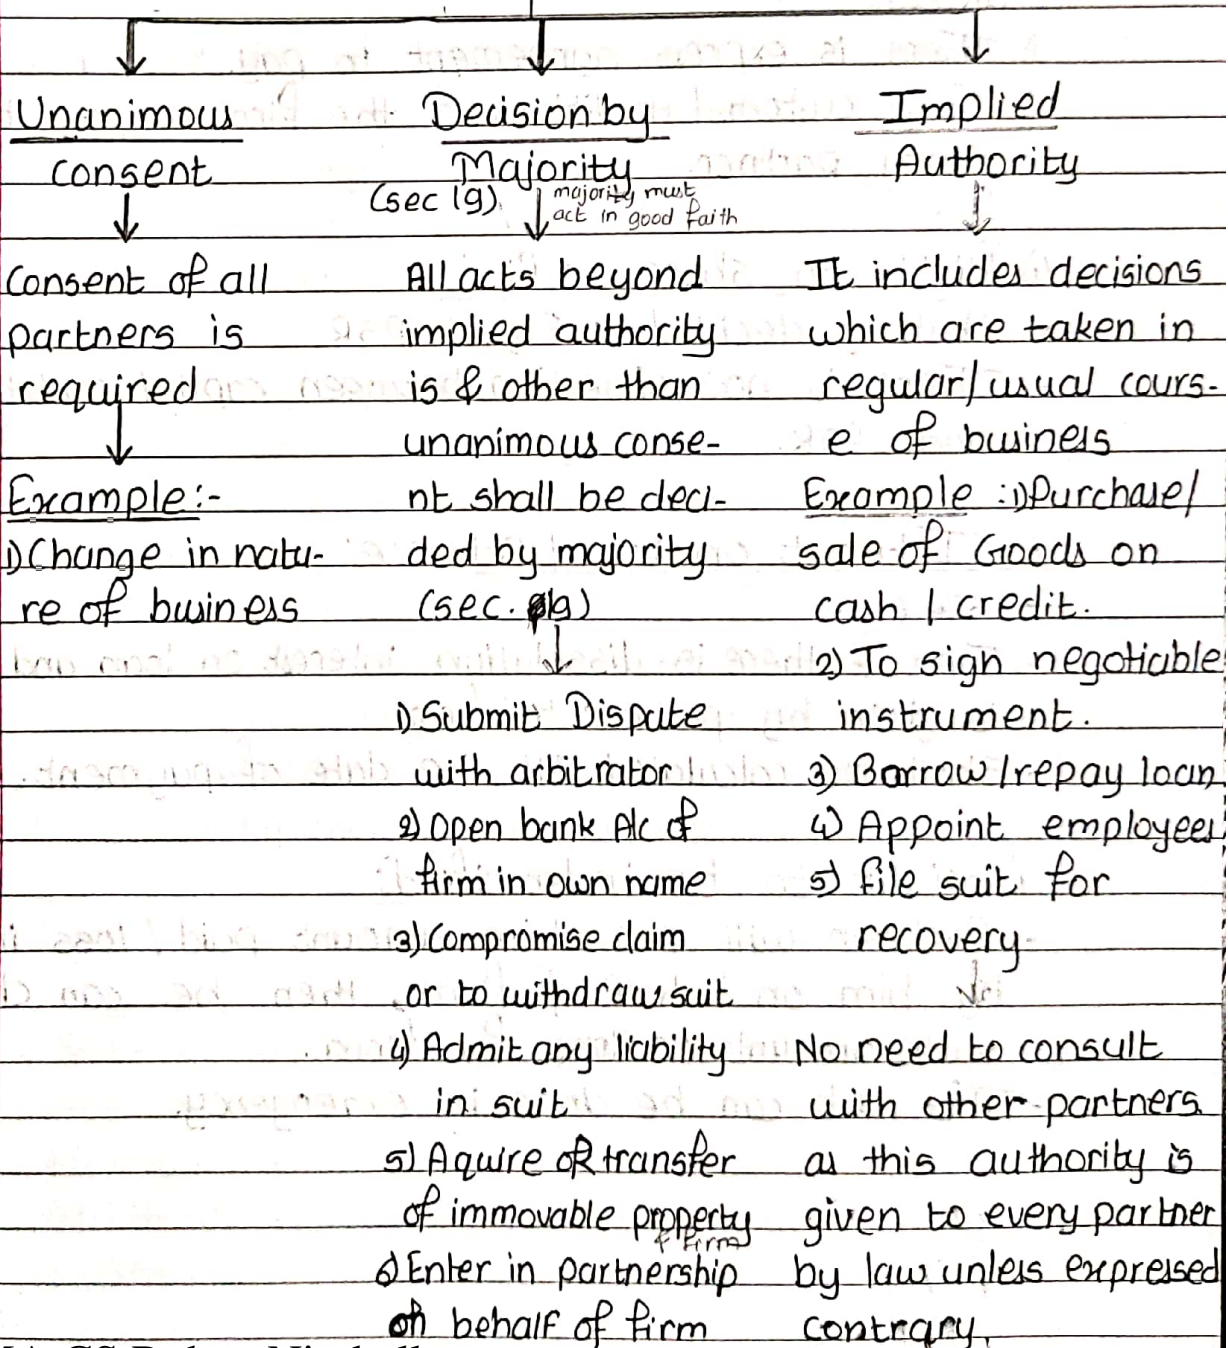 Unanimous
consent
Consent of all
partners is
required
Example:-
1) Change in natu-
re of business
Decision by
Majority
(sec 19)
majority must
act in good faith
All acts beyond
implied authority
is & other than
unanimous conse-
nt shall be deci-
ded by majority
(sec. 19)
1) Submit Dispute
with arbitrator
2) Open bank A/c of
firm in own name
3) Compromise claim
or to withdraw suit
4) Admit any liability
in suit
5) Aquire OR transfer
of immovable property
of firm
6) Enter in partnership
on behalf of firm
Implied
Authority
It includes decisions
which are taken in
regular/usual cours-
e of business
Example :1) Purchase/
sale of Goods on
cash / credit.
2) To sign negotiable
instrument.
3) Borrow / repay loan
4) Appoint employees
5) file suit for
recovery
No need to consult
with other partners
as this authority is
given to every partner
by law unless expressed
contrary.